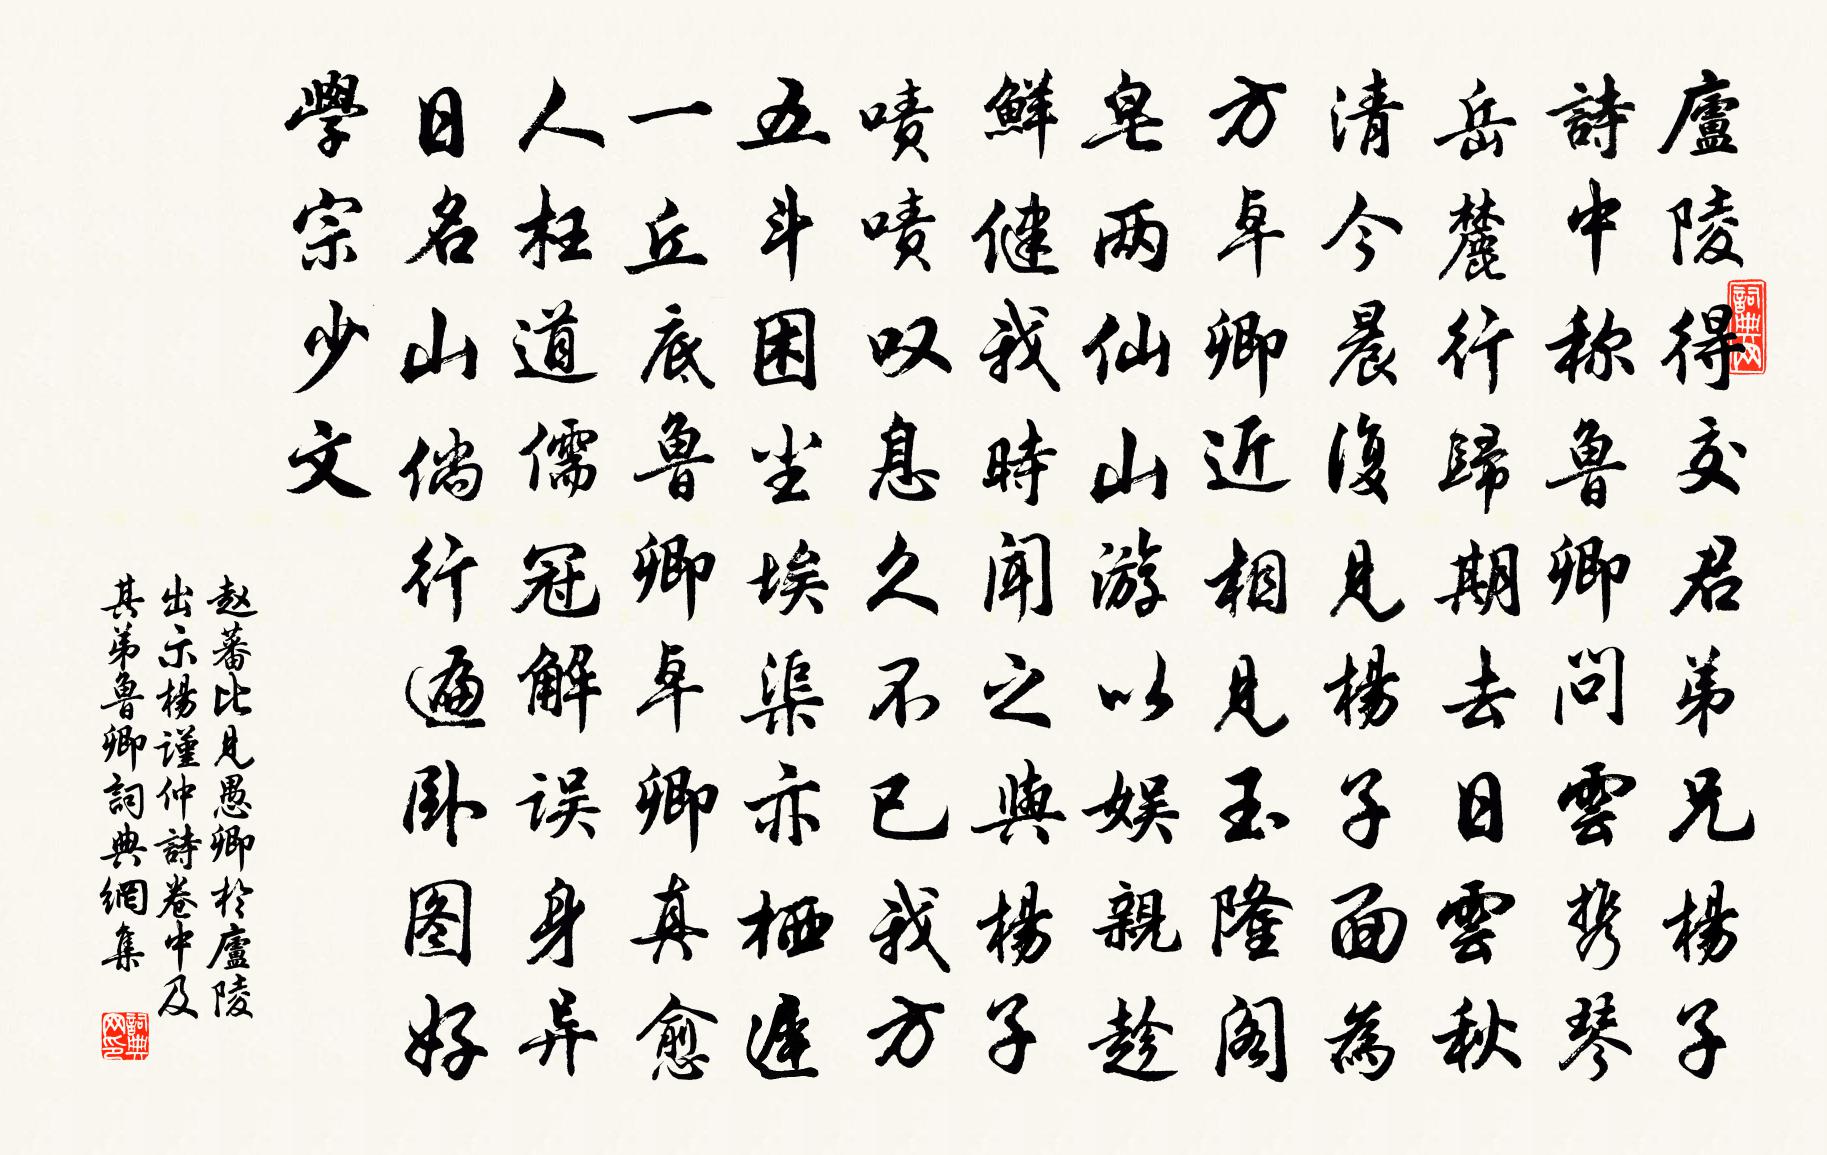 廬陵得交君弟兄楊子
詩中称魯卿問雲携琴
岳麓行歸期去日雲秋
清今晨復見楊子面為
方卓卿近相見玉隆阁
皂两仙山游以娱親趁
鮮健我時闻之與楊子
啧啧叹息久不已我方
五斗困尘埃渠亦栖遲
一丘底魯卿卓卿真愈
人枉道儒冠解误身异
日名山倘行遍卧图好
學宗少文
赵蕃比見愚卿於廬陵
出示楊谨仲詩卷中及
其弟魯卿詞典網集
詞典网
詞典网印